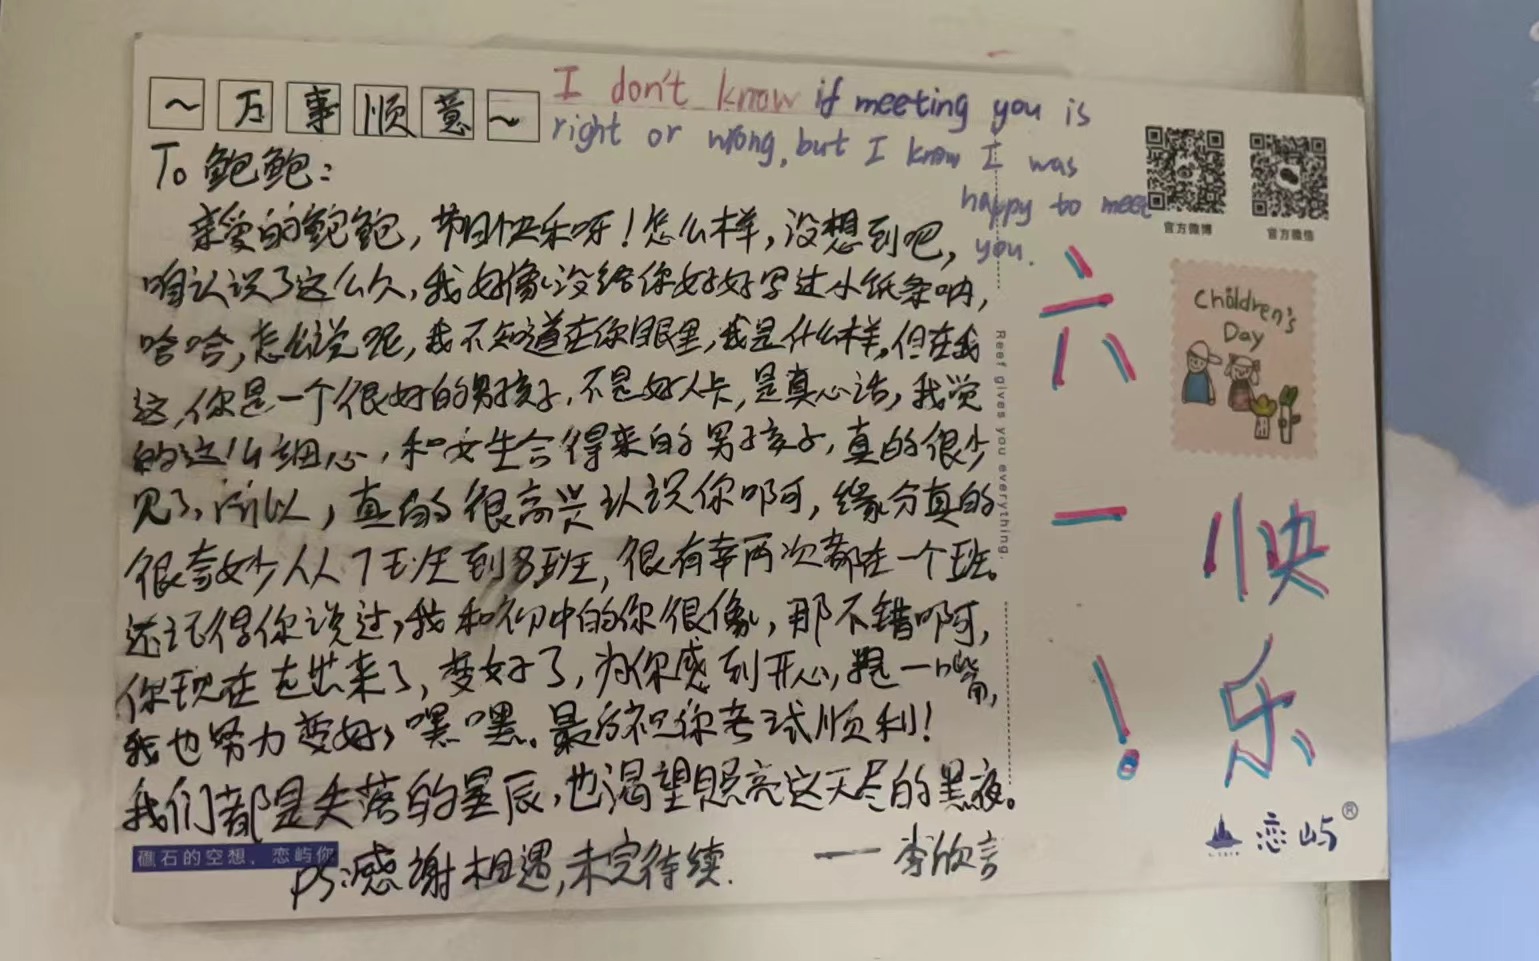 ~万事顺意~
I don't know if meeting you is
right or wrong, but I know I was
happy to meet
you.
To 鲍鲍：
亲爱的鲍鲍，节日快乐呀！怎么样，没想到吧，
咱认识了这么久，我好像没给你好好写过小纸条呐，
哈哈，怎么说呢，我不知道在你眼里，我是什么样，但在我
这，你是一个很好的男孩子，不是好人卡，是真心话，我觉
的这么细心，和女生合得来的男孩子，真的很少
见了，所以，真的很高兴认识你啊，缘分真的
很奇妙从7班到8班，很有幸两次都在一个班。
还记得你说过，我和初中的你很像，那不错啊，
你现在走出来了，变好了，为你感到开心，提一嘴，
我也努力变好，嘿嘿。最后祝你考试顺利！
我们都是失落的星辰，也渴望照亮这无尽的黑夜。
——李欣言
PS：感谢相遇，未完待续.
礁石的空想，恋屿你
Reef gives you everything.
官方微博
官方微信
Children's
Day
六
一
快
乐
！
恋屿®